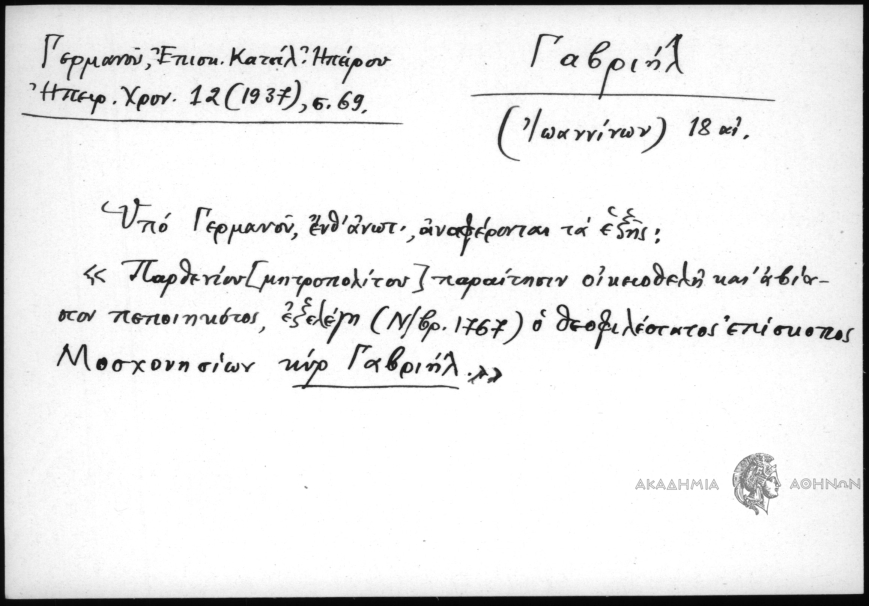 Γερμανοῦ, Ἐπισκ. Κατάλ. Ἠπείρου
Ἠπειρ. Χρον. 12 (1937), σ. 69.
Γαβριήλ
(Ἰωαννίνων) 18 αἰ.
Ὑπό Γερμανοῦ, ἔνθ' ἀνωτ., ἀναφέρονται τά ἑξῆς:
« Παρθενίου [μητροπολίτου] παραίτησιν οἰκειοθελῆ καί ἀβία-
στον πεποιηκότος, ἐξελέγη (Ν/βρ. 1767) ὁ θεοφιλέστατος ἐπίσκοπος
Μοσχονησίων κύρ Γαβριήλ.»
ΑΚΑΔΗΜΙΑ ΑΘΗΝΩΝ